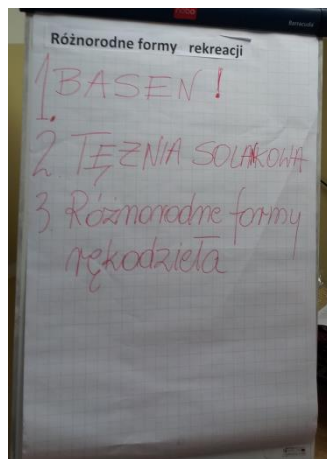 Różnorodne formy rekreacji
1. BASEN !
2. TĘŻNIA SOLANKOWA
3. Różnorodne formy
rękodzieła